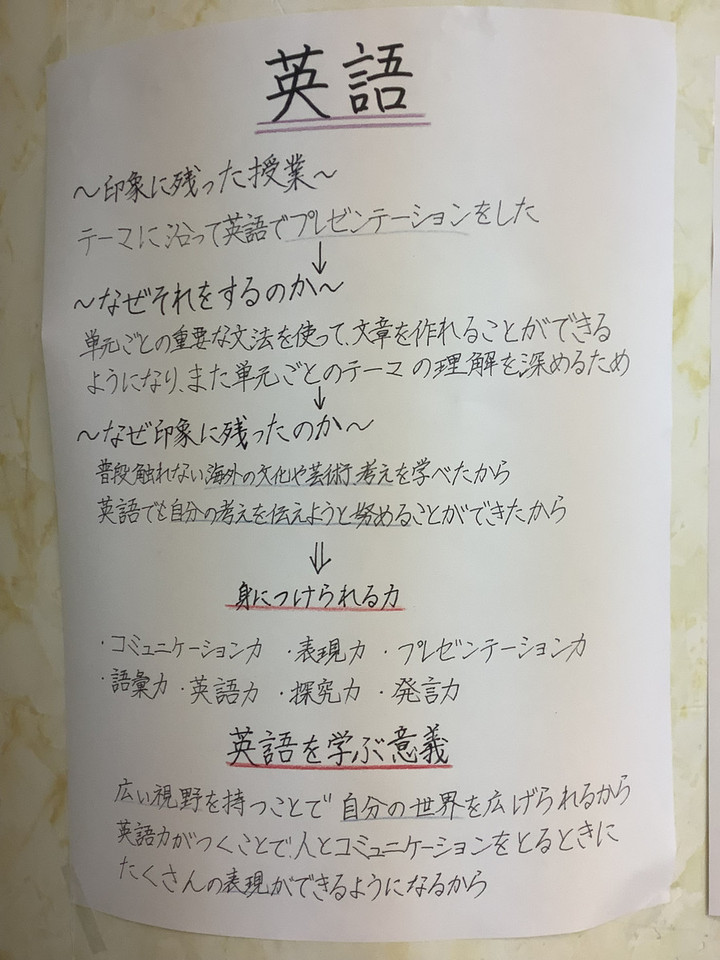 英語
～印象に残った授業～
テーマに沿って英語でプレゼンテーションをした
↓
～なぜそれをするのか～
単元ごとの重要な文法を使って、文章を作れることができる
ようになり、また単元ごとのテーマの理解を深めるため
↓
～なぜ印象に残ったのか～
普段触れない海外の文化や芸術、考えを学べたから
英語でも自分の考えを伝えようと努めることができたから
⇓
身につけられる力
・コミュニケーション力 ・表現力 ・プレゼンテーション力
・語彙力 ・英語力 ・探究力 ・発言力
英語を学ぶ意義
広い視野を持つことで自分の世界を広げられるから
英語力がつくことで、人とコミュニケーションをとるときに
たくさんの表現ができるようになるから